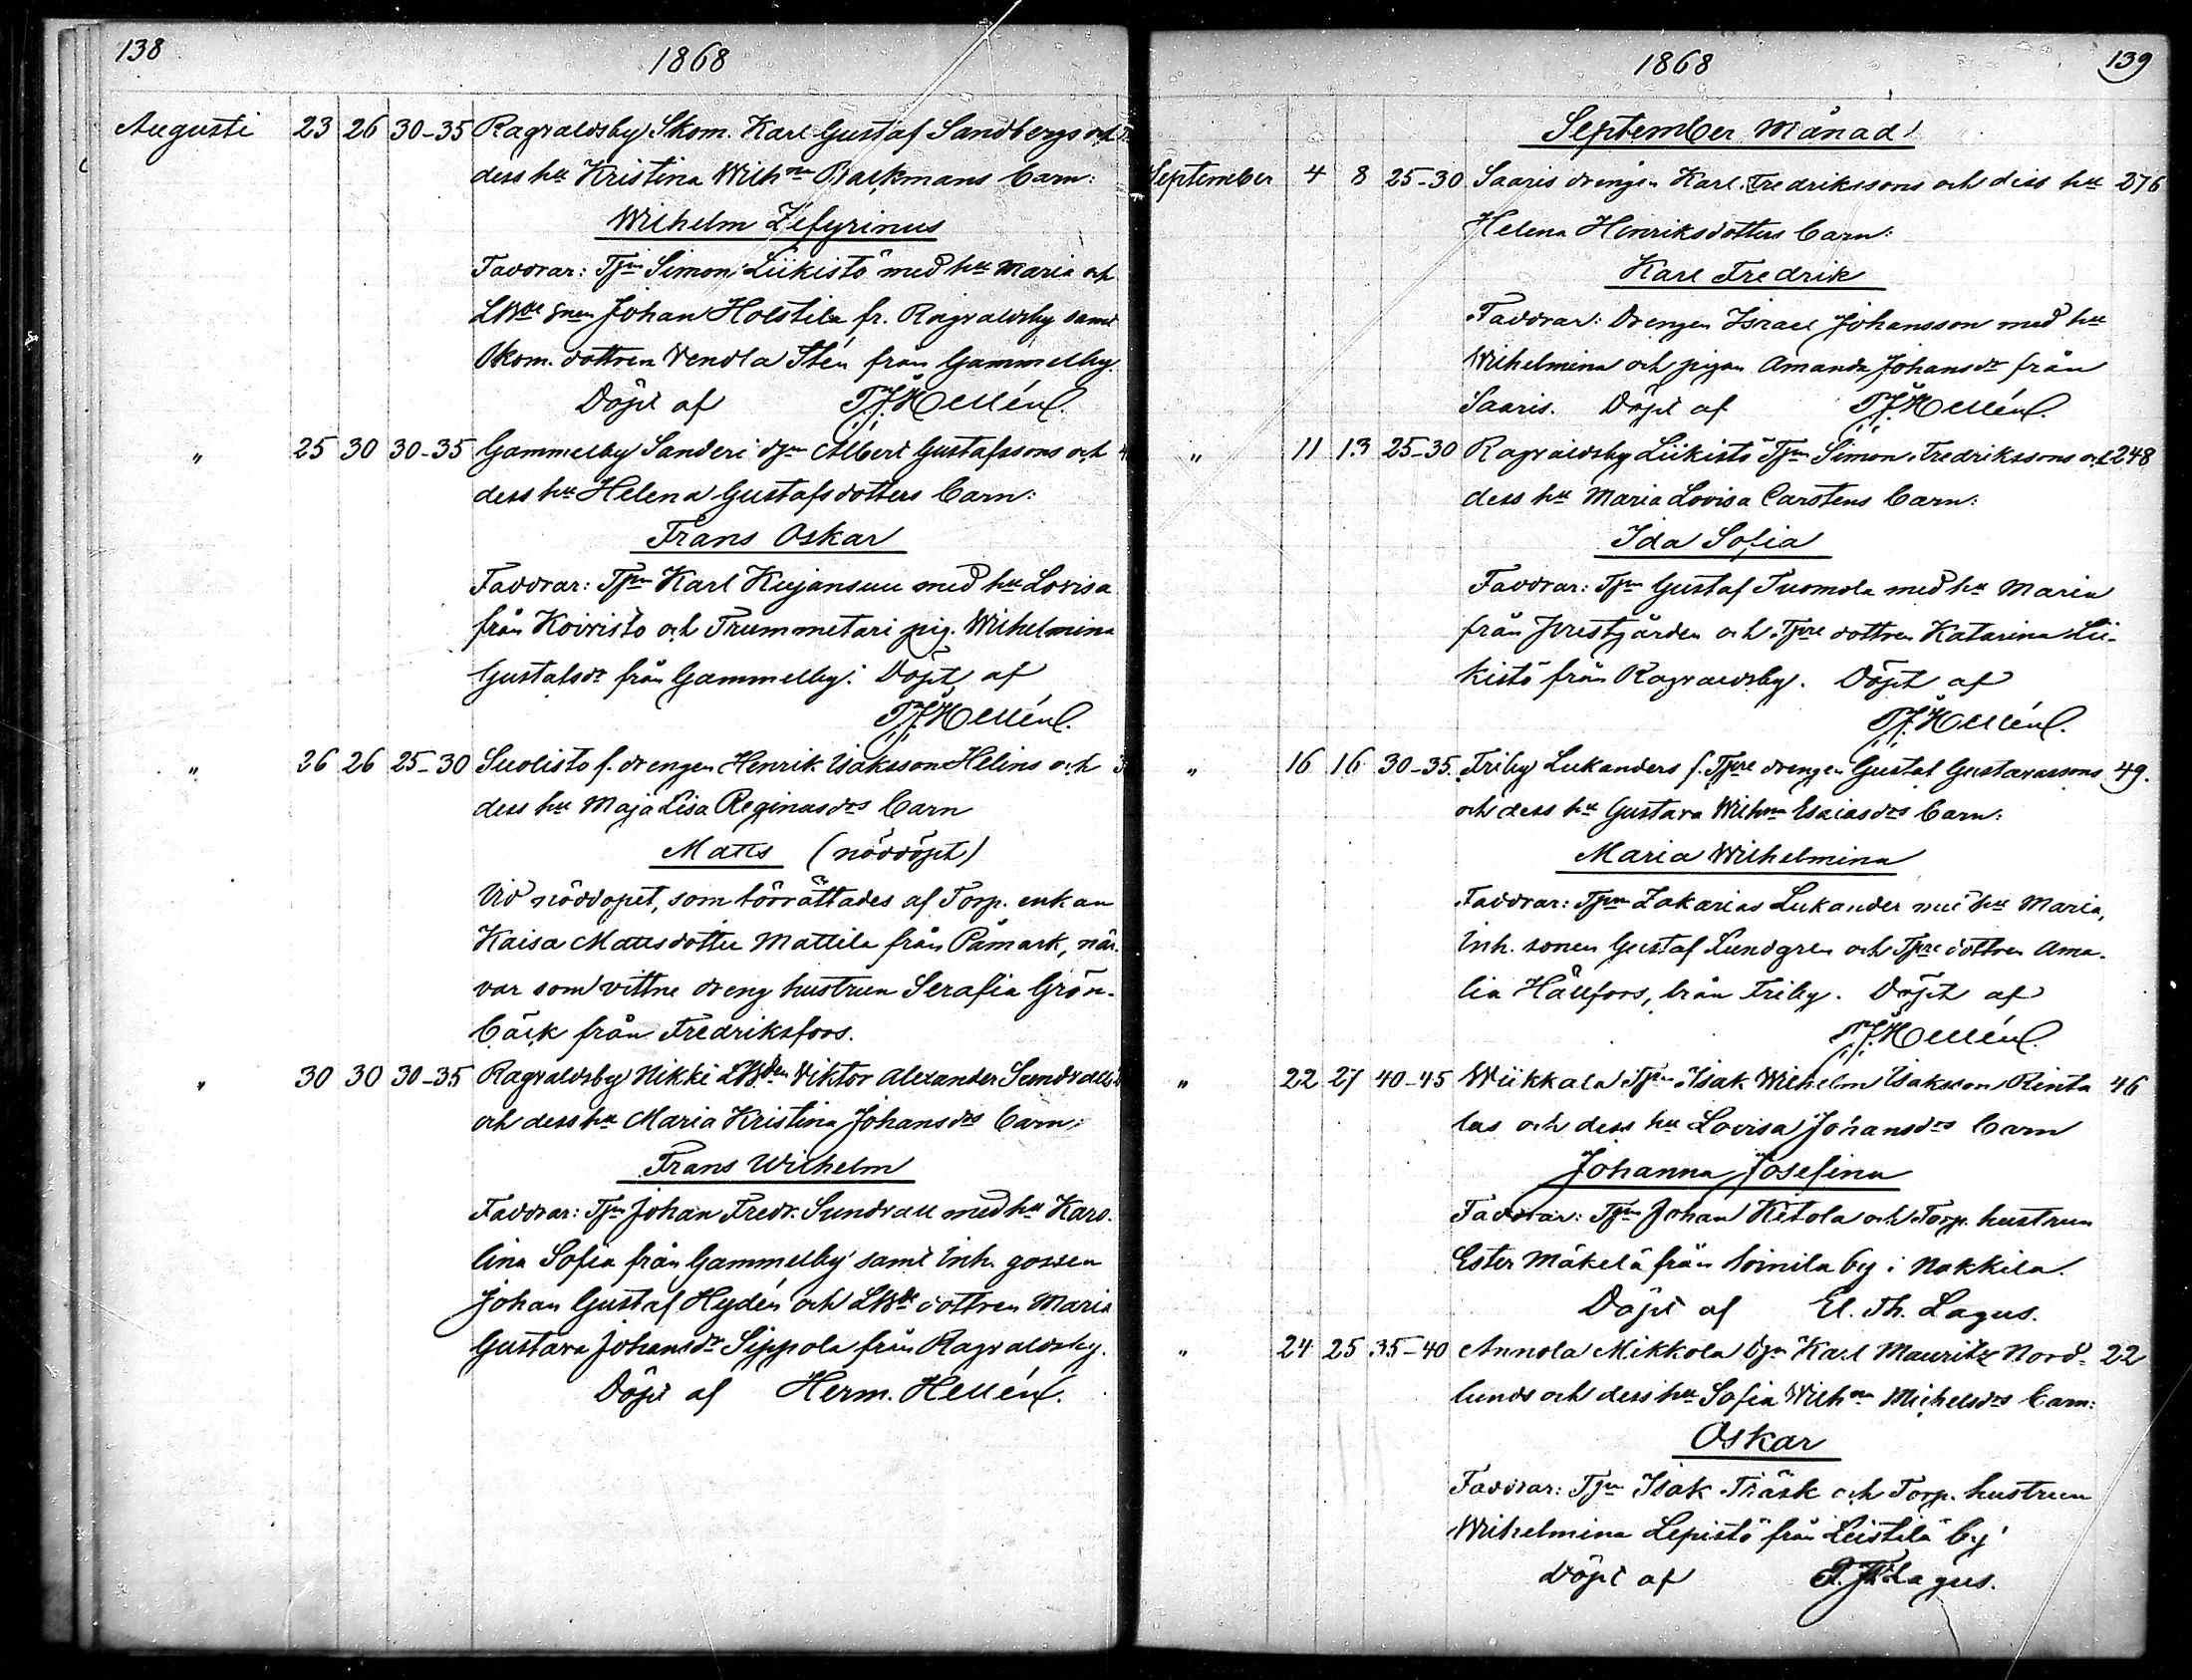 138
1868
Augusti 23 26 30-35 Ragvaldsby Skom. Karl Gustaf Sandbergs och
dess hu Kristina Wilhna Backmans barn:
Wilhelm Zefyrinus
Faddrar: Tjn Simon Liikistö med hu Maria och
Johan Holstila fr. Ragvaldsby samt
Skom. dottren Vendla Stén från Gammelby.
Döpt af Hellén.
" 25 30 30-35 Gammelby Sanderi Albert Gustafssons och
dess hu Helena Gustafsdotters barn:
Frans Oskar
Faddrar: Tjn Karl Kujansuu med hu Lovisa
från Koivisto och Trummetari pig. Wilhelmina
Gustafsdr från Gammelby. Döpt af
Hellén.
" 26 26 25-30 Suolisto f. drengen Henrik Isaksson Helins och
dess hu Maja Lisa Reginasdrs barn
Matts (nöddöpt)
Vid nöddopet, som förrättades af Torp. enkan
Kaisa Mattsdotter Mattila från Påmark, när-
var som vittne dreng hustrun Serafia Grön-
bäck från Fredriksfors.
" 30 30 30-35 Ragvaldsby Nikki Viktor Alexander Sundvalls
och dess hu Maria Kristina Johansdrs barn:
Frans Wilhelm
Faddrar: Tjn Johan Fredr. Sundvall med hu Karo-
lina Sofia från Gammelby samt Inh. gossen
Johan Gustaf Hydén och dottren Maria
Gustava Johansdr Sippola från Ragvaldsby.
Döpt af Herm. Hellén.
1868
139
September Månad
September 4 8 25-30 Saaris drengen Karl Fredrikssons och dess hu 276
Helena Henriksdotters barn:
Karl Fredrik
Faddrar: Drengen Israel Johansson med hu
Wilhelmina och pigan Amanda Johansdr från
Saaris. Döpt af Hellén.
" 11 13 25-30 Ragvaldsby Liikistö Tjn Simon Fredrikssons och 248
dess hu Maria Lovisa Carstens barn:
Ida Sofia
Faddrar: Tjn Gustaf Tuomola med hu Maria
från Prestgården och Tjre dottren Katarina Lii-
kistö från Ragvaldsby. Döpt af
Hellén.
" 16 16 30-35. Friby Lukanders f. Tjre drengen Gustaf Gustavassons 49.
och dess hu Gustava Wilhna Esaiasdrs barn:
Maria Wilhelmina
Faddrar: Tjn Zakarias Lukander med hu Maria,
Inh. sonen Gustaf Lundgren och Tjre dottren Ama-
lia Hällfors, från Friby. Döpt af
Hellén.
" 22 27 40-45 Wiikkala Tjn Isak Wilhelm Isaksson Rinta 46
las och dess hu Lovisa Johansdrs barn
Johanna Josefina
Faddrar: Tjn Johan Ketola och Torp. hustrun
Ester Mäkelä från Soinila by i Nakkila.
Döpt af El. Th. Lagus.
" 24 25 35-40 Annola Mikkola Karl Mauritz Nord- 22
lunds och dess hu Sofia Wilhna Michelsdrs barn:
Oskar
Faddrar: Tjn Isak Träsk och Torp. hustrun
Wilhelmina Lepistö från Leistilä by
Döpt af Lagus.